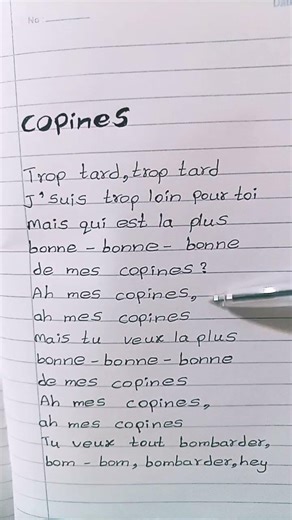 No
Date
copines
Trop tard, trop tard
J'suis trop loin pour toi
Mais qui est la plus
bonne - bonne - bonne
de mes copines?
Ah mes copines,
ah mes copines
Mais tu veux la plus
bonne - bonne - bonne
de mes copines
Ah mes copines,
ah mes copines
Tu veux tout bombarder,
bom - bom, bombarder, hey